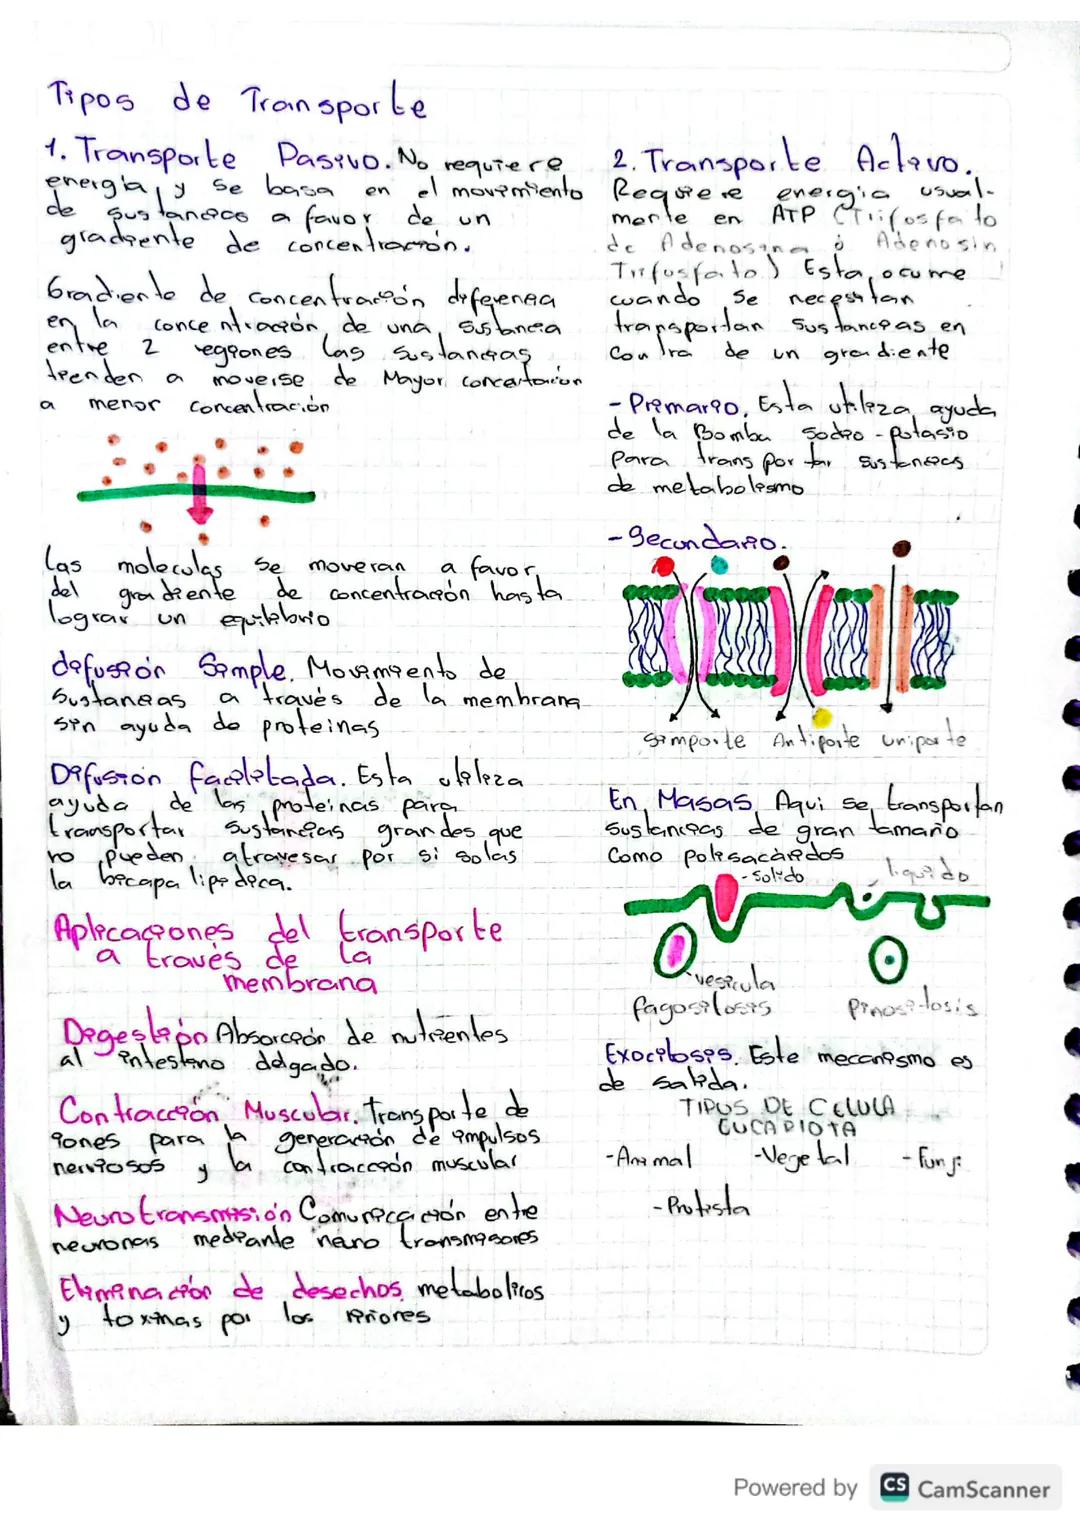 Tipos de Transporte
1. Transporte Pasivo. No requiere
energía, y se basa en el movimiento
de sustancias a favor de un
gradiente de concentración.
Gradiente de concentración diferencia
en la concentración de una sustancia
entre 2 regiones las sustancias
tienden a moverse de Mayor concentación
a menor concentración
Las moleculas se moveran a favor
del gradiente de concentración hasta
lograr un equilibrio
difusión Simple. Movimiento de
Sustancias a través de la membrana
sin ayuda de proteinas
Difusión facilitada. Esta utiliza
ayuda de las proteinas para
transportar sustancias grandes que
no pueden atravesar por si solas
la bicapa lipidica.
Aplicaciones del transporte
a través de la
membrana
Digestión Absorción de nutrientes
al intestino delgado.
Contracción Muscular. Transporte de
iones para la generación de impulsos
nerviosos y la contracción muscular
Neurotransmisión Comunicación entre
neuronas mediante neuro transmisores
Eliminación de desechos metabolicos
y toxinas por los riñones
2. Transporte Activo.
Requiere energia usual-
mente en ATP (Trifosfato
de Adenosina ó Adenosin
Trifosfato) Esta ocurre
cuando se necesitan
transportan sustancias en
contra de un gradiente
- Primario. Esta utiliza ayuda
de la Bomba sodio - potasio
para transportar sustancias
de metabolismo
- Secundario.
simporte Antiporte uniporte
En Masas Aqui se transportan
sustancias de gran tamaño
como polisacáridos
- Solido
liquido
vesicula
fagositosis
Pinositosis
Exocitosis. Este mecanismo es
de salida.
TIPOS DE CELULA
EUCARIOTA
- Animal - Vegetal - Fungi
- Protista
Powered by CS CamScanner